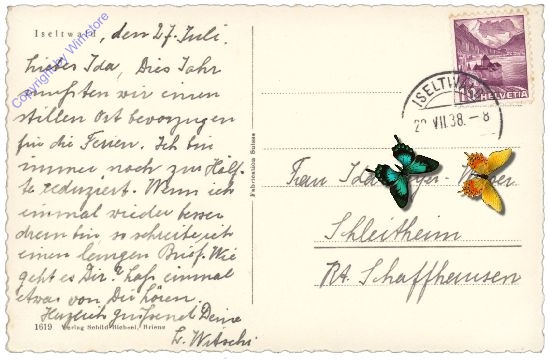 Iseltwald, den 27. Juli.
Liebes Ida, Dies Jahr
mussten wir einen
stillen Ort bevorzugen
für die Ferien. Ich bin
immer noch zur Hälf-
te reduziert. Wenn ich
einmal wieder besser
dran bin so schreibe ich
einen langen Brief. Wie
geht es Dir? Lass einmal
etwas von Dir hören.
Herzlich grüssend Deine
L. Witschi
1619 Verlag Schild-Bichsel, Brienz
Copyright by Winstore
Fabrication Suisse
HELVETIA
10
ISELTWALD
VII.38.-8
Frau Ida
Schleitheim
Kt. Schaffhausen